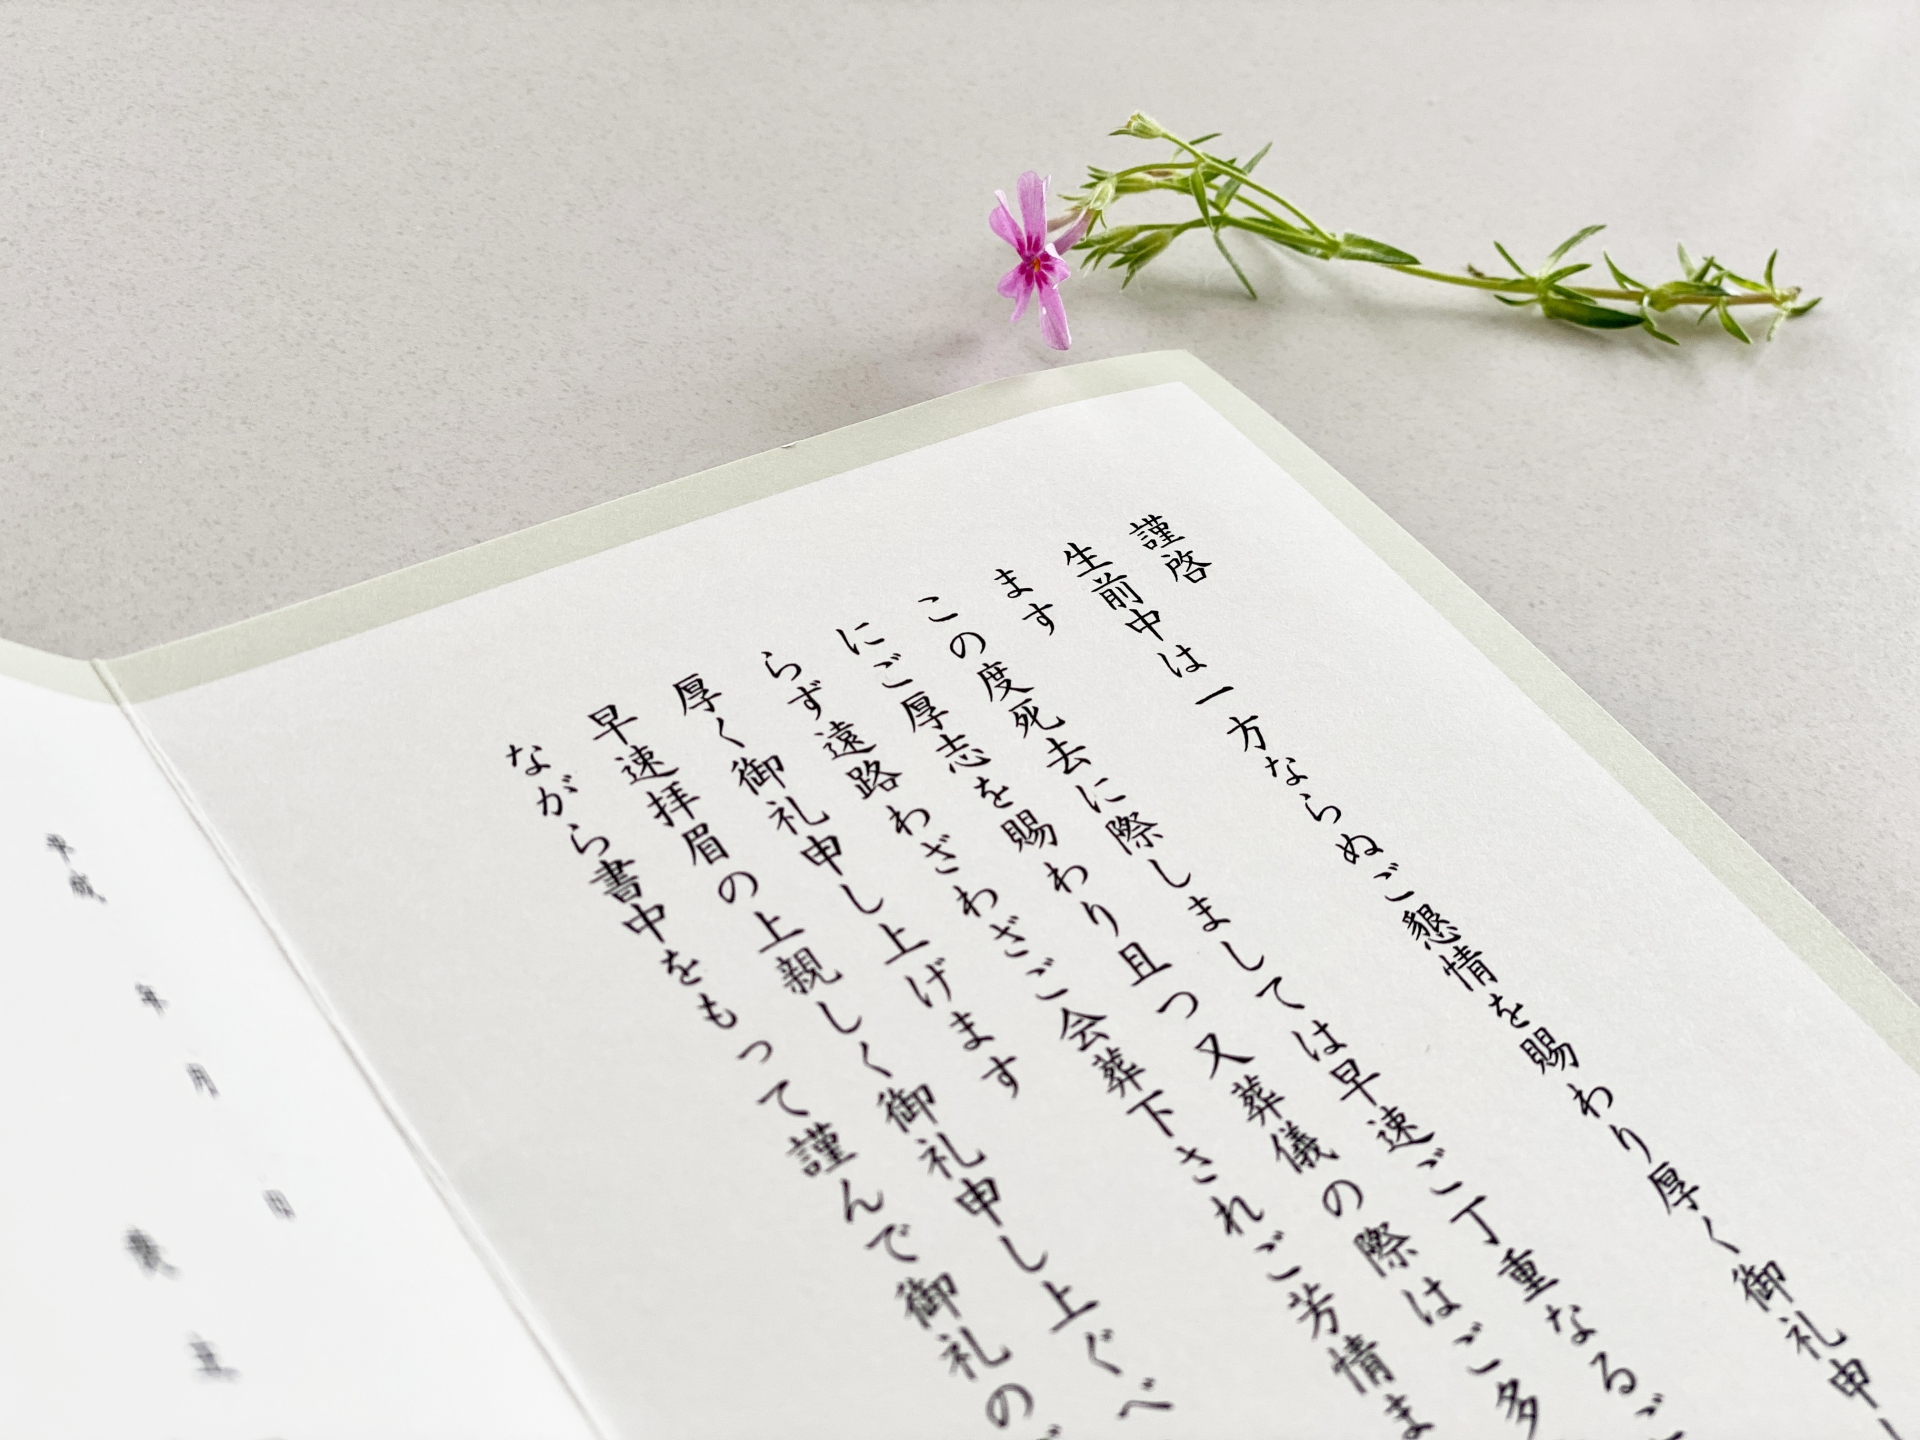 謹啓
生前中は一方ならぬご懇情を賜わり厚く御礼申し
ます
この度死去に際しましては早速ご丁重なるご
にご厚志を賜わり且つ又葬儀の際はご多
らず遠路わざわざご会葬下されご芳情ま
厚く御礼申し上げます
早速拝眉の上親しく御礼申し上ぐべ
ながら書中をもって謹んで御礼のご
平成 年 月 日
喪主